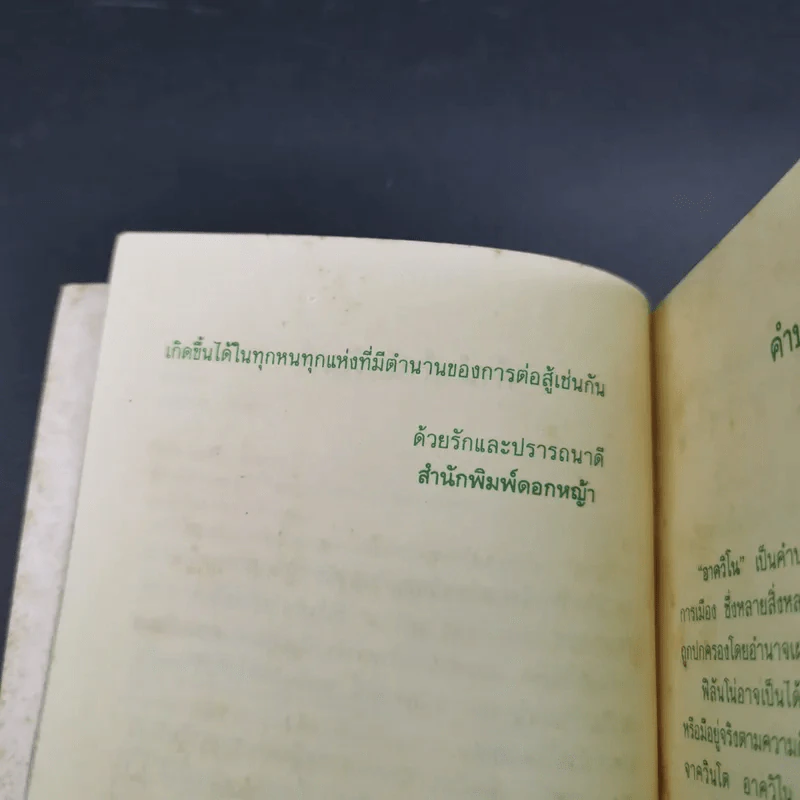 เกิดขึ้นได้ในทุกหนทุกแห่งที่มีตำนานของการต่อสู้เช่นกัน
ด้วยรักและปรารถนาดี
สำนักพิมพ์ดอกหญ้า
"อาควิโน" เป็น
การเมือง ซึ่งหลายสิ่ง
ถูกปกครองโดยอำนาจ
ฟิลันโน่อาจเป็นได้
หรือมีอยู่จริงตามความ
จาควินโต อาควิโน